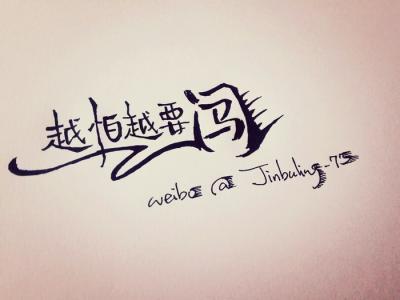 越怕越要闯
weibo @ Jinbuling-75